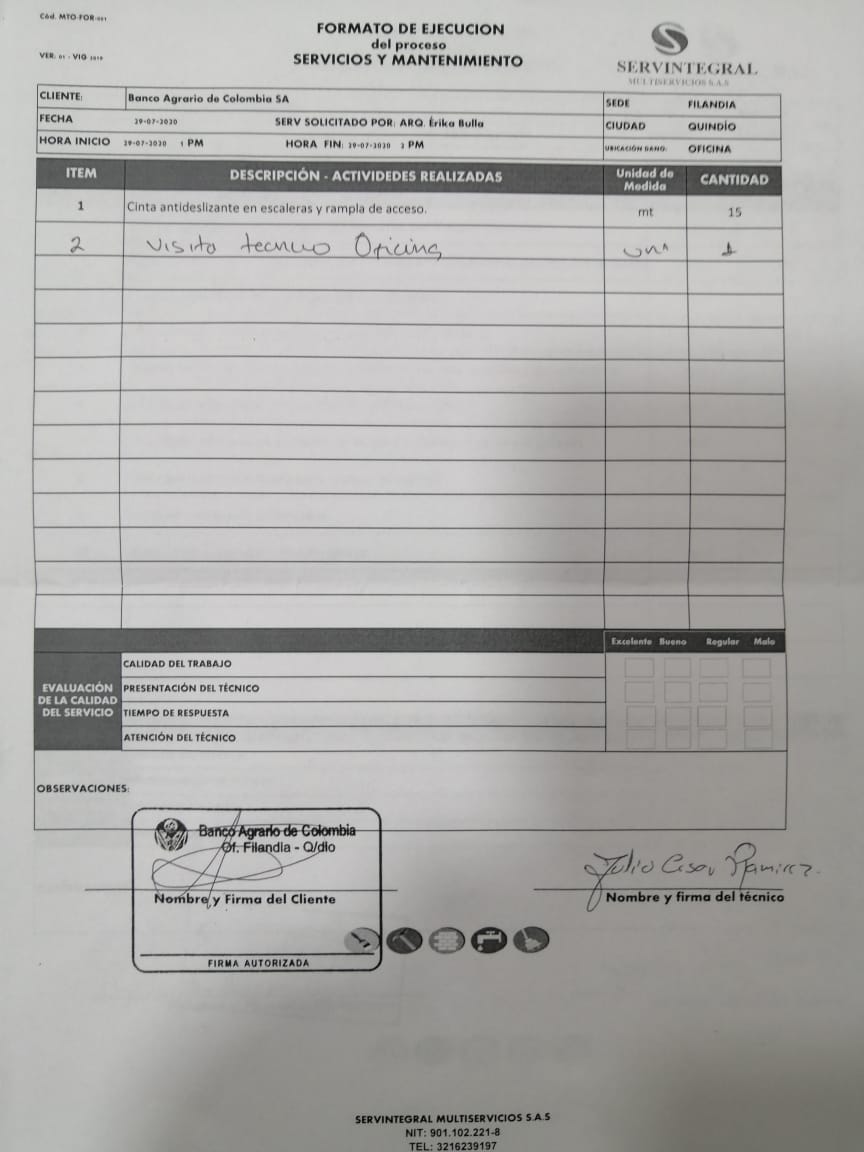 Cód. MTO-FOR-001
FORMATO DE EJECUCION
del proceso
SERVICIOS Y MANTENIMIENTO
VER. 01 - VIG 2019
SERVINTEGRAL
MULTISERVICIOS S.A.S
CLIENTE: Banco Agrario de Colombia SA SEDE FILANDIA
FECHA 29-07-2020 SERV SOLICITADO POR: ARQ. Érika Bulla CIUDAD QUINDÍO
HORA INICIO 29-07-2020 1 PM HORA FIN: 29-07-2020 2 PM UBICACIÓN BANC: OFICINA
ITEM DESCRIPCIÓN - ACTIVIDEDES REALIZADAS Unidad de Medida CANTIDAD
1 Cinta antideslizante en escaleras y rampla de acceso. mt 15
2 Visita tecnico Oficina un 1
Excelente Bueno Regular Malo
EVALUACIÓN DE LA CALIDAD DEL SERVICIO
CALIDAD DEL TRABAJO
PRESENTACIÓN DEL TÉCNICO
TIEMPO DE RESPUESTA
ATENCIÓN DEL TÉCNICO
OBSERVACIONES:
Banco Agrario de Colombia
Of. Filandia - Q/dio
Julio Cesar Ramirez
Nombre y Firma del Cliente
Nombre y firma del técnico
FIRMA AUTORIZADA
SERVINTEGRAL MULTISERVICIOS S.A.S
NIT: 901.102.221-8
TEL: 3216239197